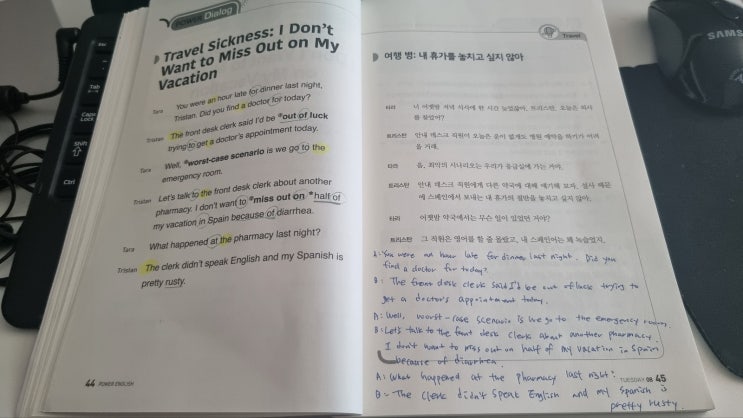 POWER Dialog
Travel Sickness: I Don't
Want to Miss Out on My
Vacation
Tara You were an hour late for dinner last night,
Tristan. Did you find a doctor for today?
Tristan The front desk clerk said I'd be *out of luck
trying to get a doctor's appointment today.
Tara Well, *worst-case scenario is we go to the
emergency room.
Tristan Let's talk to the front desk clerk about another
pharmacy. I don't want to *miss out on *half of
my vacation in Spain because of diarrhea.
Tara What happened at the pharmacy last night?
Tristan The clerk didn't speak English and my Spanish is
pretty rusty.
44 POWER ENGLISH
Travel
여행 병: 내 휴가를 놓치고 싶지 않아
타라 너 어젯밤 저녁 식사에 한 시간 늦었잖아, 트리스탄. 오늘은 의사
를 찾았어?
트리스탄 안내 데스크 직원이 오늘은 운이 없게도 병원 예약을 하기가 어려
울 거래.
타라 음, 최악의 시나리오는 우리가 응급실에 가는 거야.
트리스탄 안내 데스크 직원에게 다른 약국에 대해 얘기해 보자. 설사 때문
에 스페인에서 보내는 내 휴가의 절반을 놓치고 싶지 않아.
타라 어젯밤 약국에서는 무슨 일이 있었던 거야?
트리스탄 그 직원은 영어를 할 줄 몰랐고, 내 스페인어는 꽤 녹슬었지.
A: You were an hour late for dinner last night. Did you
find a doctor for today?
B: The front desk clerk said I'd be out of luck trying to
get a doctor's appointment today.
A: Well, worst-case scenario is we go to the emergency room.
B: Let's talk to the front desk clerk about another pharmacy.
I don't want to miss out on half of my vacation in Spain
because of diarrhea.
A: What happened at the pharmacy last night?
B: The clerk didn't speak English and my Spanish is
pretty rusty.
TUESDAY 08 45
Tab
Caps Lock
Shift
Ctrl
SAMS